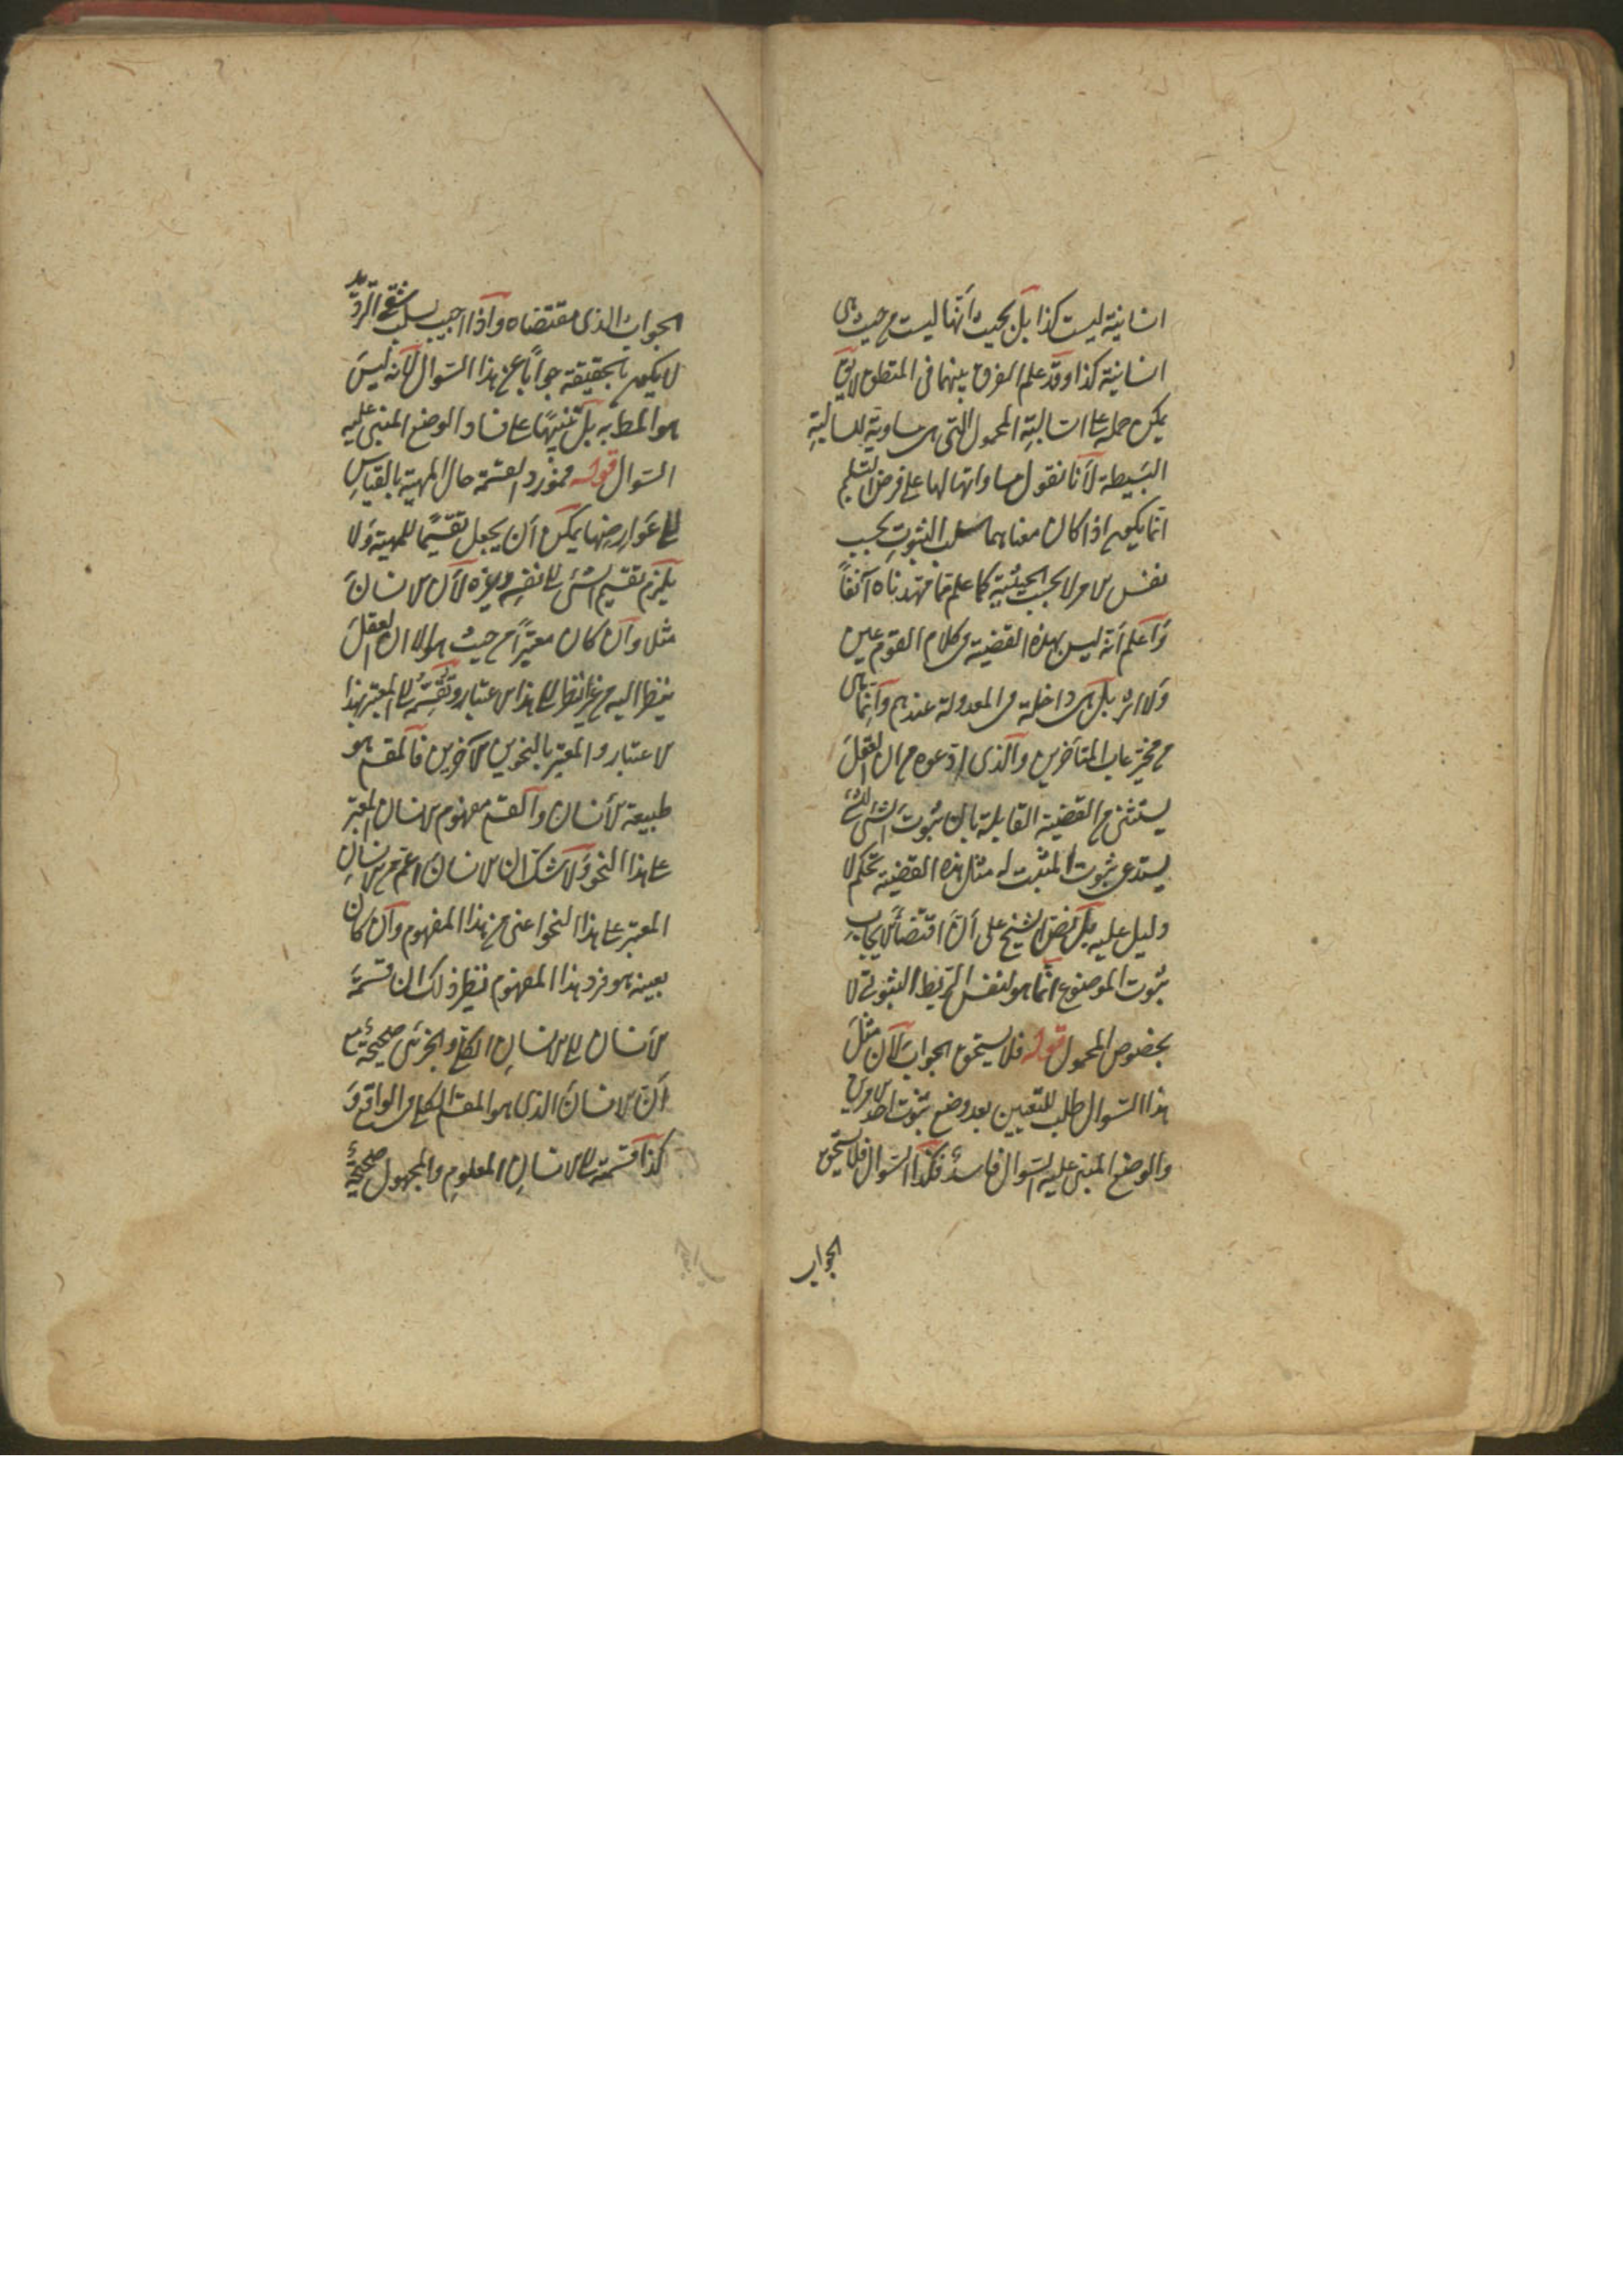 انسانية ليست كذا بل بحيث أنها ليست من حيث هي
انسانية كذا وقد علم الفرق بينهما في المنطق لا يق
يمكن حمله على السالبة المحمول التي هي مساوية للسالبة
البسيطة لأنا نقول مساواتها لها على فرض التسليم
انما يكون اذا كان معناهما سلب الثبوت بحسب
نفس الامر لا بحسب الحيثية كما علم مما مهدناه آنفاً
وأعلم أنه ليس بهذه القضية في كلام القوم عين
ولا اثر بل هي داخلة في المعدولة عندهم وإنما هي
من مخترعات المتأخرين والذي ادعوه من ان العقل
يستثني من القضية القايلة بان ثبوت الشئ للشئ
يستدعي ثبوت المثبت له مثل هذه القضية تحكم لا
دليل عليه بل نص الشيخ على أن اقتضاء الايجاب
ثبوت الموضوع انما هو لنفس الربط الثبوتي لا
بخصوص المحمول قوله فلا يستحق الجواب لأن مثل
هذا السؤال طلب للتعيين بعد وضع ثبوت احد الامرين
والوضع المبني عليه السؤال فاسد فكذا السؤال فلا يستحق
الجواب
الجواب الذي مقتضاه وإذا اجيب بسلب شقي الترديد
لا يكون بالحقيقة جواباً عن هذا السؤال لأنه ليس
هو المط به بل تنبيهًا على فساد الوضع المبني عليه
السؤال قوله فمورد القسمة حال المهية بالقياس
الى عوارضها يمكن أن يجعل تقسيمًا للمهية ولا
يلزم تقسيم الشئ الى نفسه وغيره لأن الانسان
مثلا وان كان معتبراً من حيث هو الا ان العقل
ينظر اليه من غير نظر الى هذا الاعتبار وتقسمه الى المعتبر بهذا
الاعتبار والمعتبر بالنحوين الآخرين فالمقسم هو
طبيعة الأنسان والقسم مفهوم الانسان المعتبر
على هذا النحو ولا شك ان الانسان اعم من الانسان
المعتبر على هذا النحو اعني من هذا المفهوم وان كان
بعينه هو فرد هذا المفهوم نظير ذلك ان قسمة
الأنسان الى الانسان الكلي والجزئي صحيحة مع
أن الانسان الذي هو المقسم كلي في الواقع و
كذا قسمته الى الانسان المعلوم والمجهول صحيحة